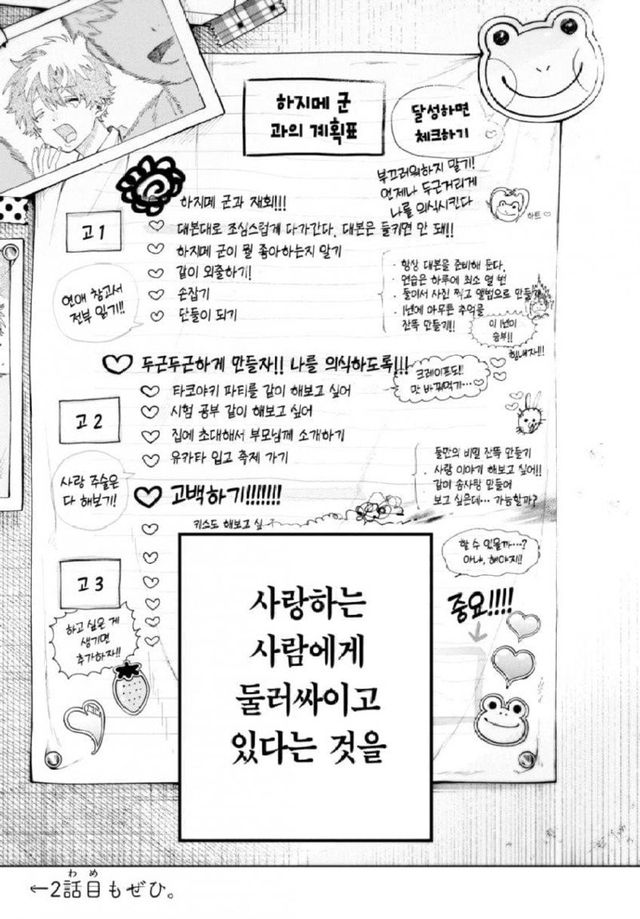 하지메 군
과의 계획표
달성하면
체크하기
부끄러워하지 말기!
언제나 두근거리게
나를 의식시킨다
하트♡
고1
하지메 군과 재회!!!
대본대로 조심스럽게 다가간다. 대본은 들키면 안 돼!!
하지메 군이 뭘 좋아하는지 알기
같이 외출하기!
손잡기
단둘이 되기
연애 참고서
전부 읽기!!
· 항상 대본을 준비해 둔다.
· 연습은 하루에 최소 열 번
· 둘이서 사진 찍고 앨범으로 만들기
· 1년에 아무튼 추억을
잔뜩 만들기!!
이 1년이
승부!!
힘내자!!
두근두근하게 만들자!! 나를 의식하도록!!!
크레이프도!!
맛 바꿔먹기…
고2
타코야키 파티를 같이 해보고 싶어
시험 공부 같이 해보고 싶어
집에 초대해서 부모님께 소개하기
유카타 입고 축제 가기
사랑 주술은
다 해보기!
둘만의 비밀 잔뜩 만들기
· 사랑 이야기 해보고 싶어!!
같이 송사탕 만들어
보고 싶은데… 가능할까?
고백하기!!!!!!!
키스도 해보고 싶
할 수 있을까…?
아니, 해야지!!
고3
하고 싶은 게
생기면
추가하자!!
중요!!!!
사랑하는
사람에게
둘러싸이고
있다는 것을
←2話目もぜひ。
わめ